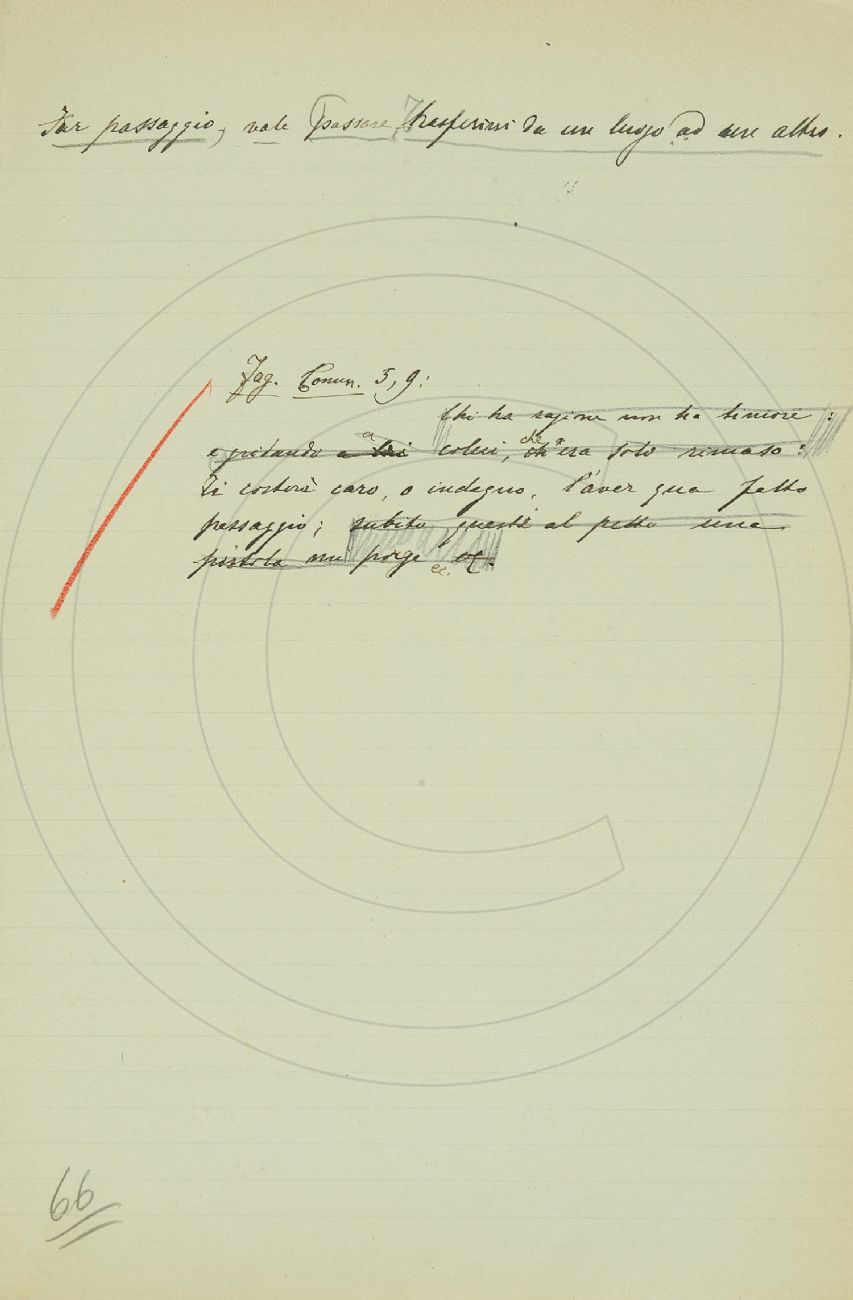 Far passaggio, vale Passare, Trasferirsi da un luogo ad un altro.
Fag. Comm. 5, 9:
Chi ha ragione non ha timore:
e gridando a colui, che era solo rimaso:
Ti costerà caro, o indegno, l'aver qua fatto
passaggio; subito questi al petto una
pistola mi porge ec.
66